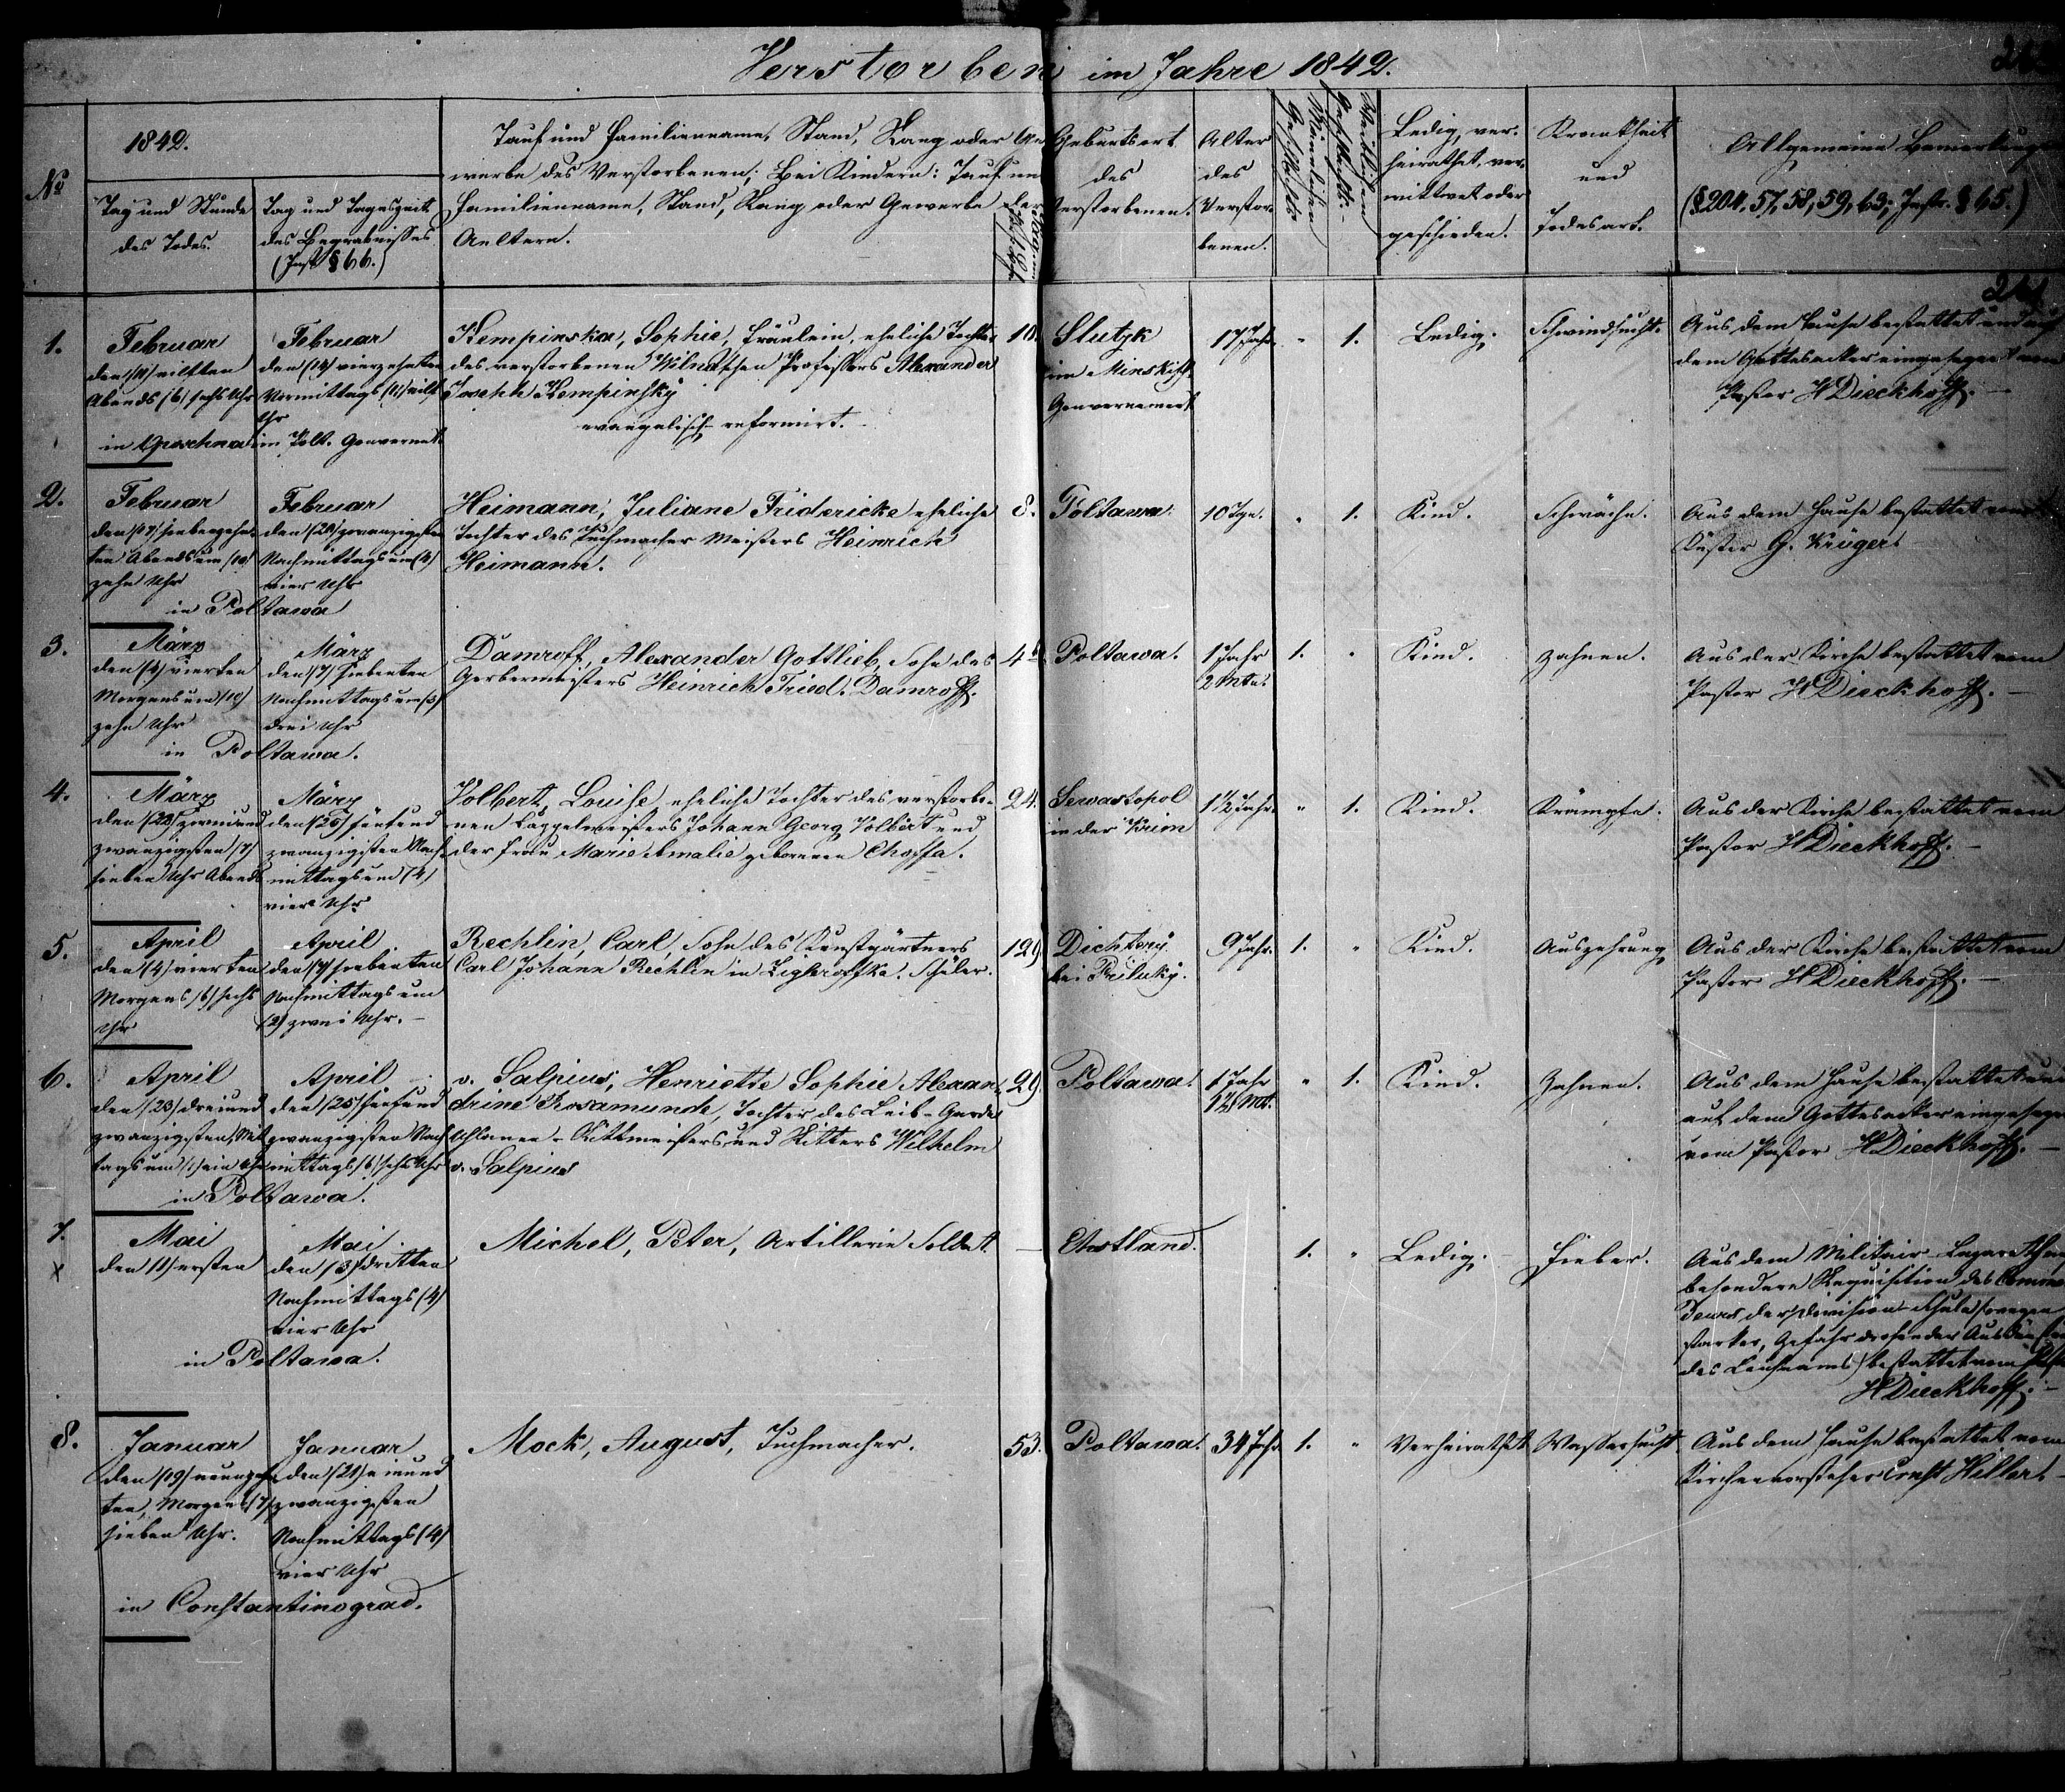 Verstorben im Jahre 1842.
No
1842.
Tag und Stunde
des Todes.
Tag und Tageszeit
des Begräbnisses
(Inst. § 66.)
Tauf und Familienname, Stand, Rang oder Ge
werbe des Verstorbenen; Bei Kindern: Tauf un
Familienname, Stand, Rang oder Gewerbe der
Aeltern.
Geburtsort
des
Verstorbenen.
Alter
des
Verstor-
benen.
Männlichen
Geschlechts
Weiblichen
Geschlechts-
Ledig, ver-
heirathet, ver-
wittwet oder
geschieden.
Krankheit
und
Todesart.
Allgemeine Bemerkung
(§ 204, 57, 58, 59, 63; Instr. § 65.)
1.
Februar
den (11) eilften
Abends (6) sechs Uhr
Februar
den (14) vierzehnten
Vormittags (11) eilf
Uhr
im Polt. Gouvernet.
Kempinska, Sophie, Fräulein, eheliche Tochter
des verstorbenen Wilnaschen Professors Alexander
Joseph Kempinsky
evangelisch-reformirt.
18.
Slutzk
im Minskisch.
Gouvernement
17 Jahr.
"
1.
Ledig.
Schwindsucht.
Aus dem Hause bestattet und auf
dem Gottesacker eingesegnet vom
Pastor H Dieckhoff.
2.
Februar
den (17) siebenzehn-
ten Abends um (10)
zehn Uhr
Februar
den (20) zwanzigsten
Nachmittags um (4)
vier Uhr
in Poltawa
Heimann, Juliane Fridericke eheliche
Tochter des Tuchmacher Meisters Heinrich
Heimann.
8.
Poltawa.
10 Tge.
"
1.
Kind.
Schwäche.
Aus dem Hause bestattet vom
Küster G. Krüger.
3.
März
den (4) vierten
Morgens um (10)
zehn Uhr
März
den (7) siebenten
Nachmittags um (3)
drei Uhr
in Poltawa.
Damroff, Alexander Gottlieb, Sohn des
Gerbermeisters Heinrich Fried. Damroff.
Poltawa.
1 Jahr
2 Mte.
1.
"
Kind.
Zahnen.
Aus der Kirche bestattet vom
Pastor H Dieckhoff.
4.
März
zwanzigsten (7)
sieben Uhr Abends
März
den (25) fünfund
zwanzigsten Nach-
mittags um (4)
vier Uhr
Volbert, Louise, eheliche Tochter des verstorbe-
nen Kappelmeisters Johann Georg Volbert und
der Frau Marie Amalie geborenen
24.
Sewastopol
in der Krim
1½ Jahr.
"
1.
Kind.
Krämpfe.
Aus der Kirche bestattet vom
Pastor H Dieckhoff.
5.
April
den (4) vierten
Morgens (6) sechs
Uhr
April
den (7) siebenten
Nachmittags um
(2) zwei Uhr.
Rechlin, Carl, Sohn des Kunstgärtners
Carl Johann Rechlin in Schüler.
129
bei Priluky.
9 Jahr.
1.
"
Kind.
Auszehrung
Aus der Kirche bestattet vom
Pastor H Dieckhoff.
6.
April
den (23) dreiund
zwanzigsten, Mit
tags um (1) ein Uhr
April
den (25) fünfund
zwanzigsten Nach
mittags (6) sechs Uhr
in Poltawa.
v. Salpius, Henriette Sophie Alexan-
drine Rosamunde, Tochter des Leib-Garde
Uhlanen-Rittmeisters und Ritters Wilhelm
v. Salpius
29.
Poltawa.
1 Jahr
"
1.
Kind.
Zahnen.
Aus dem Hause bestattet und
auf dem Gottesacker eingeseg
vom Pastor H Dieckhoff.
7.
x
Mai
den (1) ersten
Mai
den (3) dritten
Nachmittags (4)
vier Uhr
in Poltawa.
Michel, Peter, Artillerie Soldat.
Ehstland.
1.
"
Ledig.
Fieber.
Aus dem Militair-Lazareth
besondere Requisition des Comman
deurs der Division
starker, Gefahr drohender Ausdünst
des Leichnams) bestattet vom
H Dieckhoff.
8.
Januar
den (19) neunzehn
ten, Morgens (7)
sieben Uhr.
Januar
den (21) einund
zwanzigsten
Nachmittags (4)
vier Uhr
in Constantinograd.
Mock, August, Tuchmacher.
53.
Poltawa.
34 Jahr
1.
"
Verheirathet
Wassersucht
Aus dem Hause bestattet vom
Kirchenvorsteher Ernst Heller.